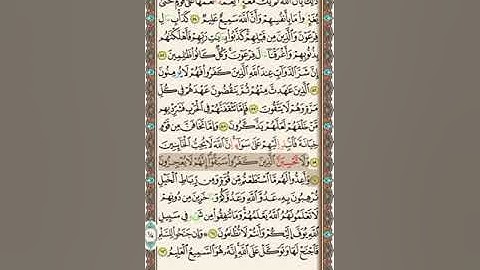 ذَٰلِكَ بِأَنَّ ٱللَّهَ لَمْ يَكُ مُغَيِّرًا نِّعْمَةً أَنْعَمَهَا عَلَىٰ قَوْمٍ حَتَّىٰ
يُغَيِّرُوا۟ مَا بِأَنفُسِهِمْ وَأَنَّ ٱللَّهَ سَمِيعٌ عَلِيمٌ ٥٣ كَدَأْبِ ءَالِ
فِرْعَوْنَ وَٱلَّذِينَ مِن قَبْلِهِمْ كَذَّبُوا۟ بِـَٔايَـٰتِ رَبِّهِمْ فَأَهْلَكْنَـٰهُم
بِذُنُوبِهِمْ وَأَغْرَقْنَآ ءَالَ فِرْعَوْنَ وَكُلٌّ كَانُوا۟ ظَـٰلِمِينَ ٥٤
إِنَّ شَرَّ ٱلدَّوَآبِّ عِندَ ٱللَّهِ ٱلَّذِينَ كَفَرُوا۟ فَهُمْ لَا يُؤْمِنُونَ
٥٥ ٱلَّذِينَ عَـٰهَدتَّ مِنْهُمْ ثُمَّ يَنقُضُونَ عَهْدَهُمْ فِى كُلِّ
مَرَّةٍ وَهُمْ لَا يَتَّقُونَ ٥٦ فَإِمَّا تَثْقَفَنَّهُمْ فِى ٱلْحَرْبِ فَشَرِّدْ بِهِم
مَّنْ خَلْفَهُمْ لَعَلَّهُمْ يَذَّكَّرُونَ ٥٧ وَإِمَّا تَخَافَنَّ مِن قَوْمٍ
خِيَانَةً فَٱنۢبِذْ إِلَيْهِمْ عَلَىٰ سَوَآءٍ إِنَّ ٱللَّهَ لَا يُحِبُّ ٱلْخَآئِنِينَ
٥٨ وَلَا يَحْسَبَنَّ ٱلَّذِينَ كَفَرُوا۟ سَبَقُوٓا۟ إِنَّهُمْ لَا يُعْجِزُونَ
٥٩ وَأَعِدُّوا۟ لَهُم مَّا ٱسْتَطَعْتُم مِّن قُوَّةٍ وَمِن رِّبَاطِ ٱلْخَيْلِ
تُرْهِبُونَ بِهِۦ عَدُوَّ ٱللَّهِ وَعَدُوَّكُمْ وَءَاخَرِينَ مِن دُونِهِمْ
لَا تَعْلَمُونَهُمُ ٱللَّهُ يَعْلَمُهُمْ وَمَا تُنفِقُوا۟ مِن شَىْءٍ فِى سَبِيلِ
ٱللَّهِ يُوَفَّ إِلَيْكُمْ وَأَنتُمْ لَا تُظْلَمُونَ ٦٠ وَإِن جَنَحُوا۟ لِلسَّلْمِ
فَٱجْنَحْ لَهَا وَتَوَكَّلْ عَلَى ٱللَّهِ إِنَّهُۥ هُوَ ٱلسَّمِيعُ ٱلْعَلِيمُ ٦١